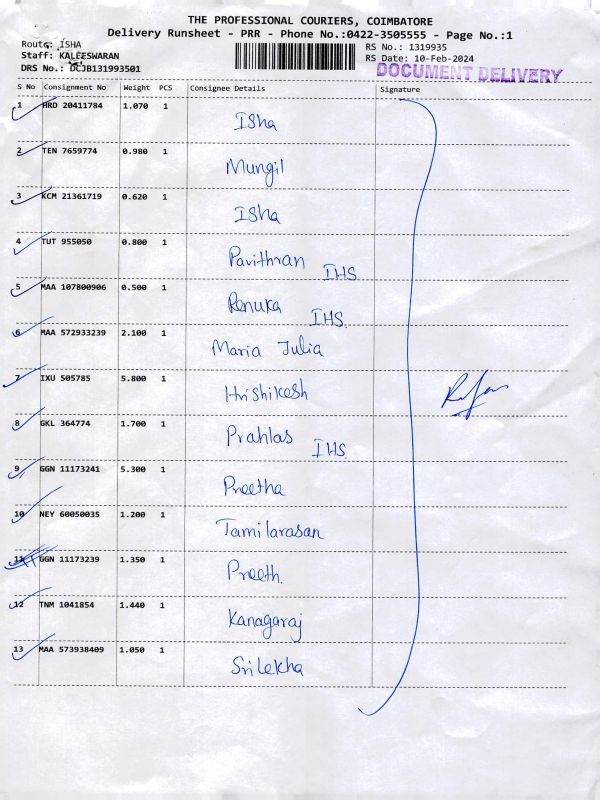 THE PROFESSIONAL COURIERS, COIMBATORE
Delivery Runsheet - PRR - Phone No.:0422-3505555 - Page No.:1
Route: ISHA
RS No.: 1319935
Staff: KALEESWARAN
RS Date: 10-Feb-2024
DRS No.: DCJB131993501
DOCUMENT DELIVERY
S No Consignment No Weight PCS Consignee Details Signature
1 HRD 20411784 1.070 1
Isha
2 TEN 7659774 0.980 1
Mungil
3 KCM 21361719 0.620 1
Isha
4 TUT 955050 0.800 1
Pavithran IHS
5 MAA 107800906 0.500 1
Renuka IHS.
6 MAA 572933239 2.100 1
Maria Julia
7 IXU 505785 5.800 1
Hrishikesh
8 GKL 364774 1.700 1
Prahlas IHS.
9 GGN 11173241 5.300 1
Preetha
10 NEY 60050035 1.200 1
Tamilarasan
11 GGN 11173239 1.350 1
Preeth.
12 TNM 1041854 1.440 1
Kanagaraj
13 MAA 573938409 1.050 1
Srilekha